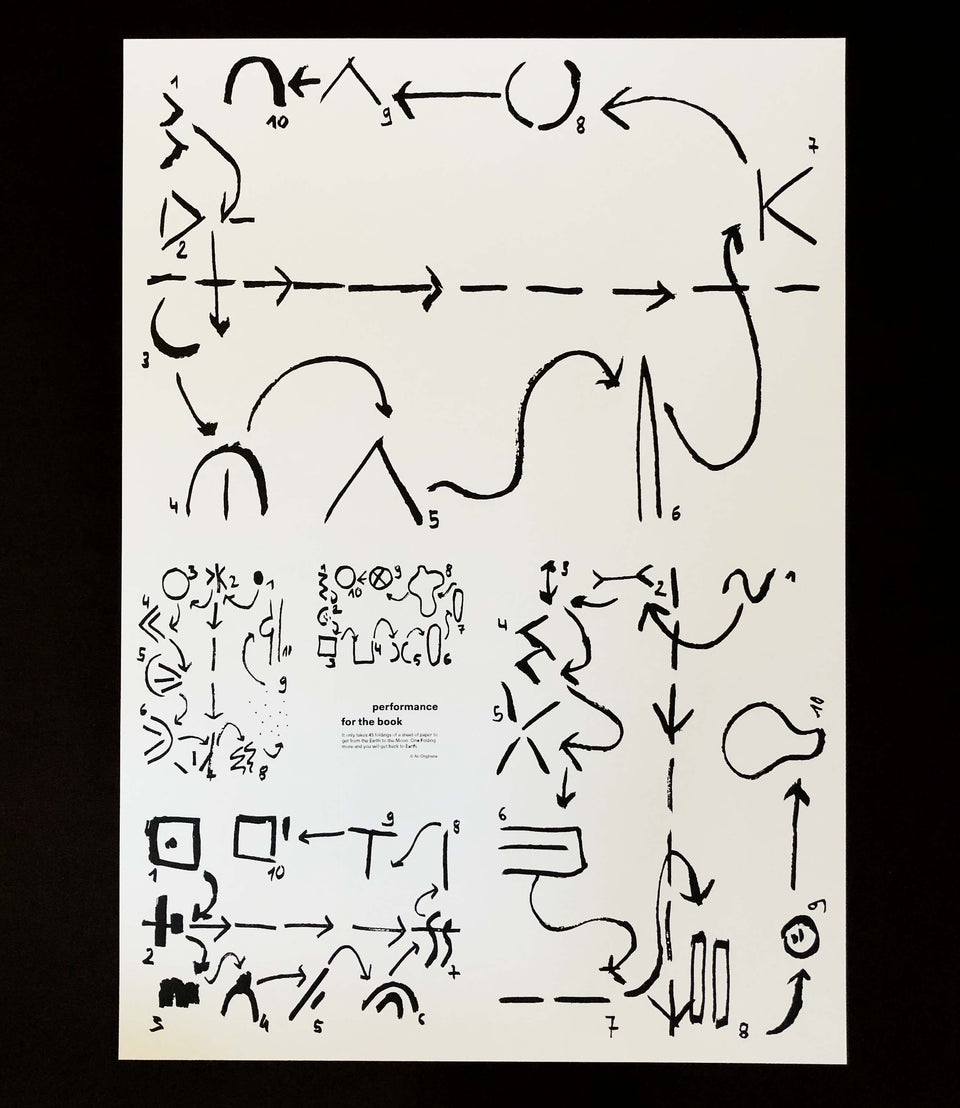 1
10
9
8
7
2
3
4
5
6
3
2
1
4
5
10
9
6
7
8
1
10
9
8
2
7
3
4
5
6
performance
for the book
It only takes 45 foldings of a sheet of paper to
get from the Earth to the Moon. One Folding
more and you will get back to Earth.
3
2
1
4
5
10
6
9
7
8
1
10
9
8
2
7
3
4
5
6